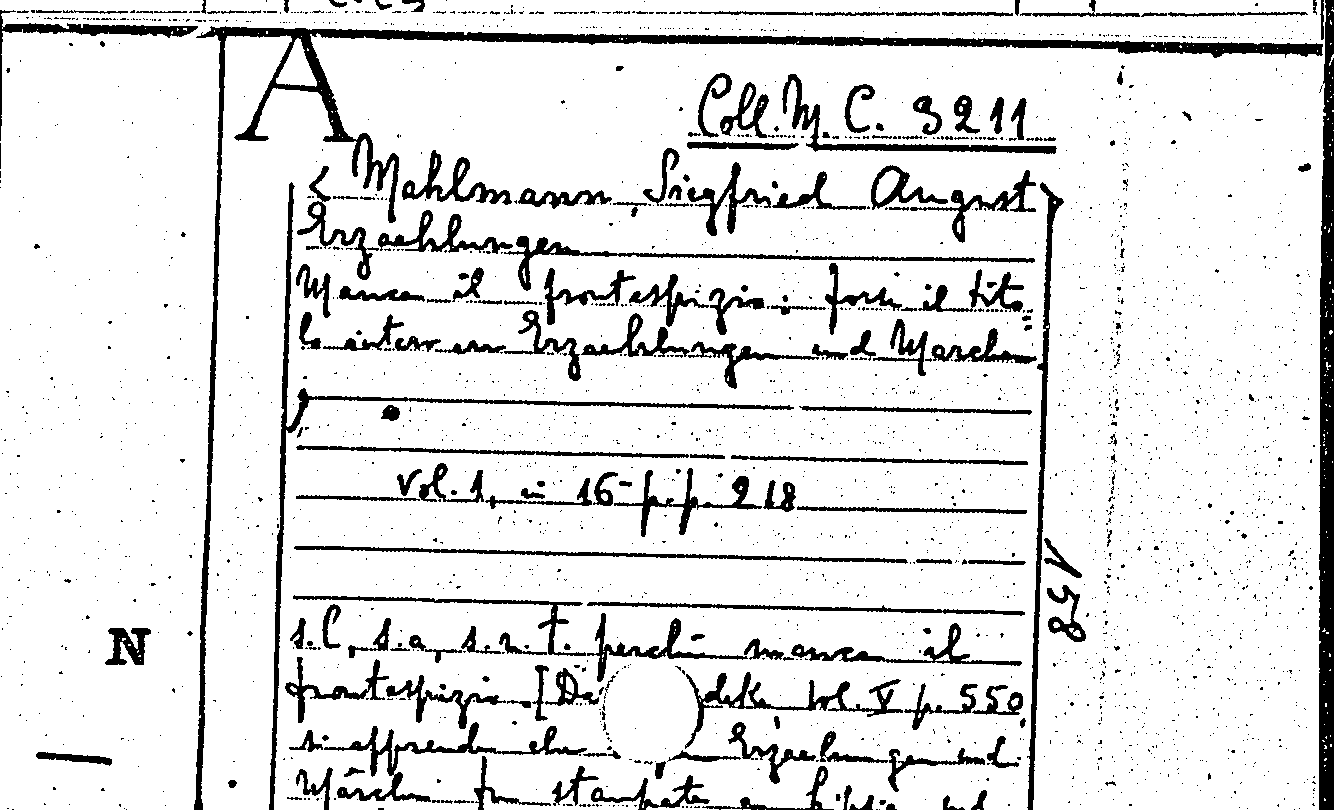 A
Coll. M. C. 3211
< Mahlmann, Siegfried August >
Erzaehlungen
Manca il frontespizio; forse il tito=
lo intero era Erzaehlungen und Marchen
vol. 1, in 16- p.p. 218
158
s.l, s.a, s.n.t. perchè manca il
N
frontespizio. [Da deke, vol. V p. 550,
si apprende che Erzaehlungen und
Märchen fu stampato a Lipsia nel